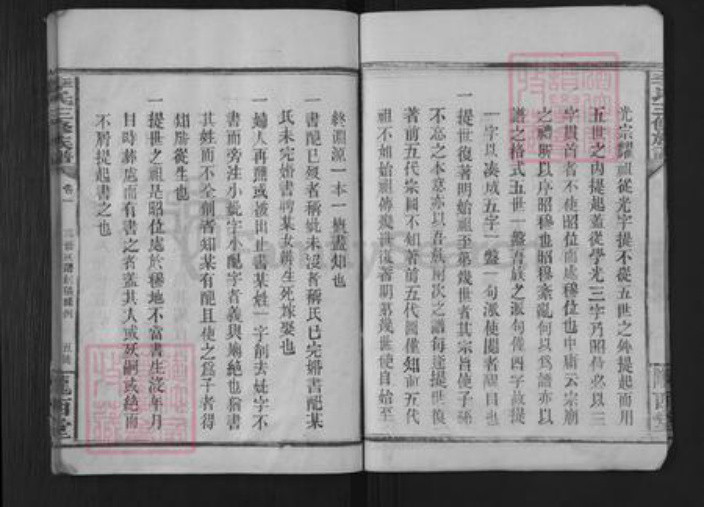 光宗耀祖從光字提不從五世之外提起而用
五世之內提起蓋從學光三字乃昭位必以三
字貫首者不使昭位而處穆位也中庸云宗廟
之禮所以序昭穆也昭穆紊亂何以為譜亦以
譜之格式五世一盤吾族之派句僅四字故提
一字以湊成五字一盤一句派使閱者醒目也
一提世復著明始祖至第幾世者其宗旨使子孫
不忘之本意亦以吾族前次之譜每逢提世復
著前五代宗圖不如著前五代圖僅知前五代
祖不如始祖傳幾世復著明第幾世使自始至
終淵源一本一覽盡知也
一書配已歿者稱妣未沒者稱氏已完婚書配某
氏未完婚書聘某女辨生死嫁娶也
一婦人再醮或被出止書某姓一字削去妣字不
書而旁注小妣字小配字者義與廟絕也猶書
其姓而不全削者知某有配且使之為子者得
知所從生也
一提世之祖是昭位處於穆地不當書生沒年月
日時葬處而有書之者蓋其人或殀嗣或絕而
不屑提起書之也
李氏三修族譜
卷一
五
隴西堂
李氏三修族譜
隴西堂